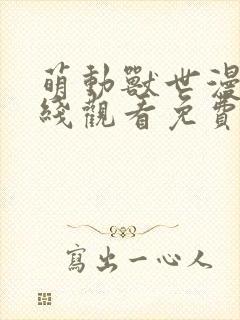 萌動獸世漫
綫觀看免費
寫出一心人